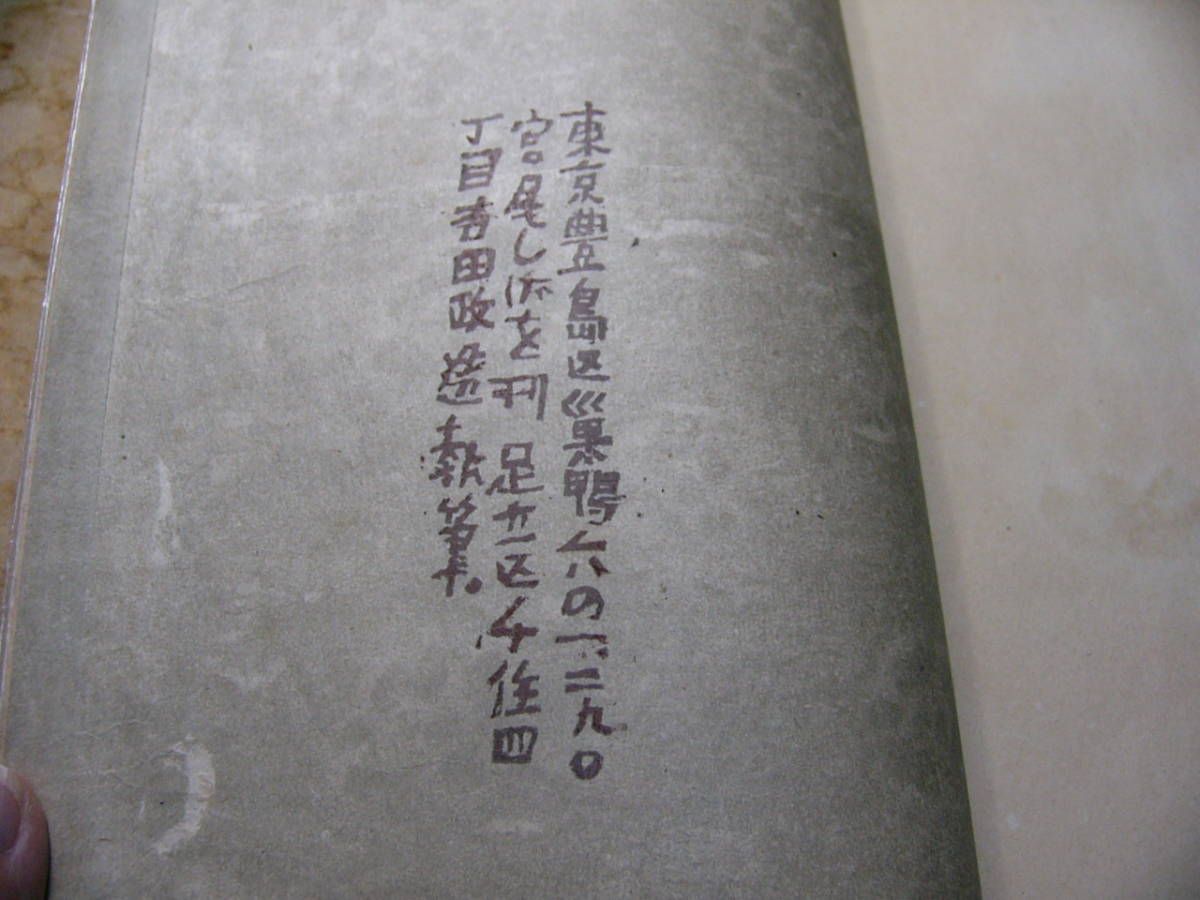 東京豊島区巣鴨六の一、二九〇
宮尾しげを刊 足立区千住四
丁目吉田政造執筆。